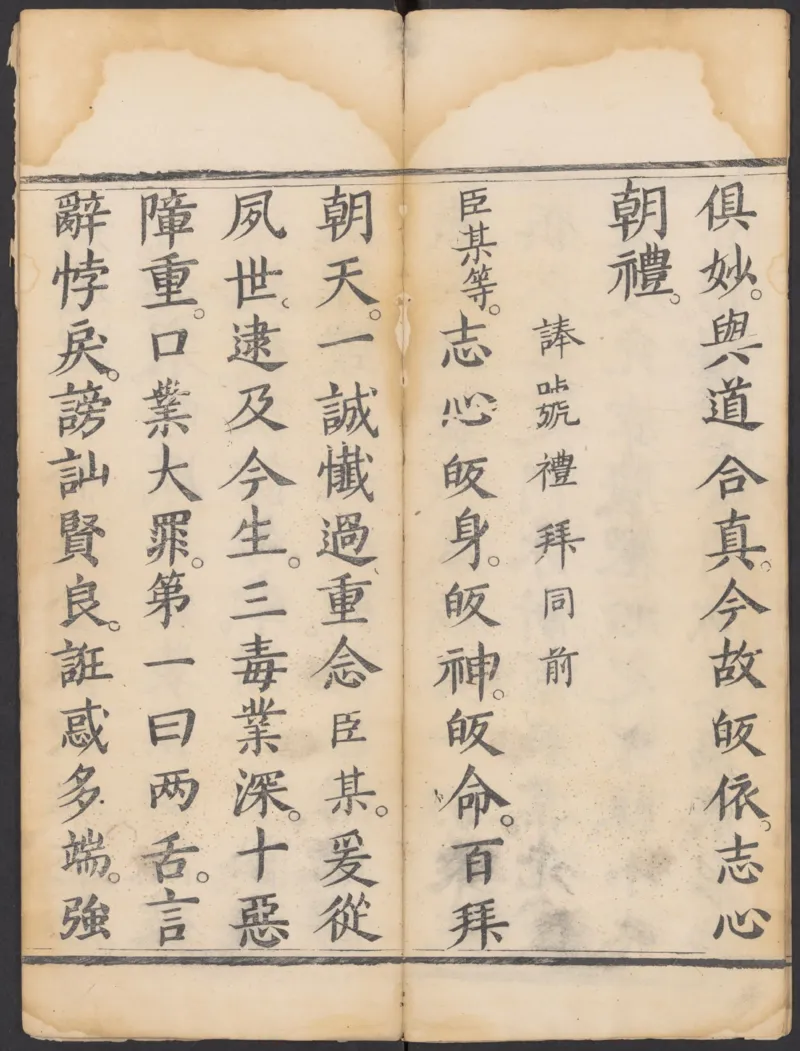 俱妙。與道合真。今故皈依。志心
朝禮。
諱號禮拜同前
臣某等。志心皈身。皈神。皈命。百拜
朝天。一誠懺過。重念臣某。爰從
夙世。逮及今生。三毒業深。十惡
障重。口業大罪。第一曰两舌。言
辭悖戾。謗訕賢良。誑惑多端。強